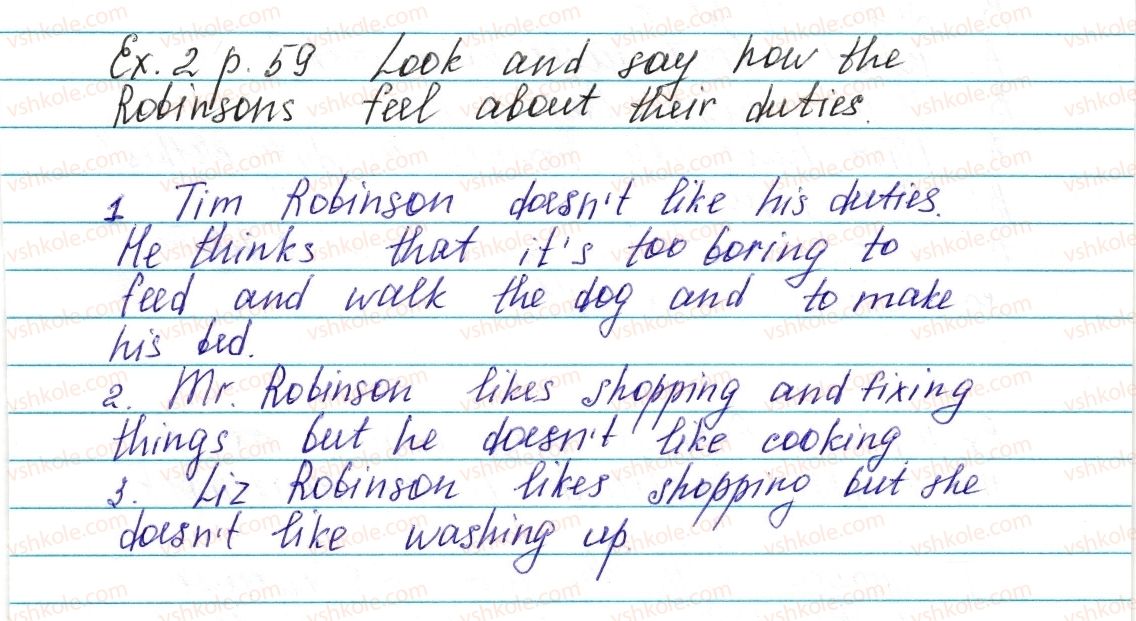 Ex. 2 p. 59 Look and say how the
Robinsons feel about their duties.
1. Tim Robinson doesn't like his duties.
He thinks that it's too boring to
feed and walk the dog and to make
his bed.
2. Mr. Robinson likes shopping and fixing
things but he doesn't like cooking.
3. Liz Robinson likes shopping but she
doesn't like washing up.
vshkole.com